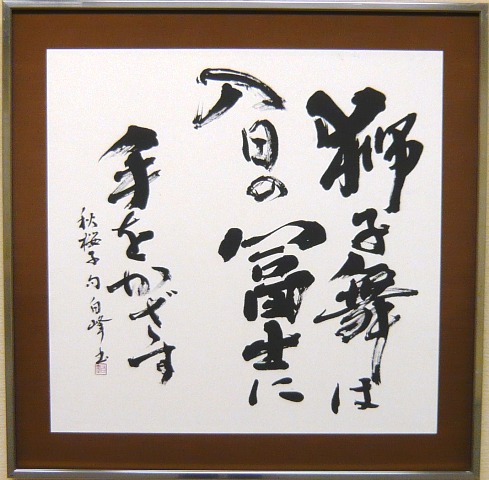 獅子舞は
入日の冨士に
手をかざす
秋桜子句 白峰書